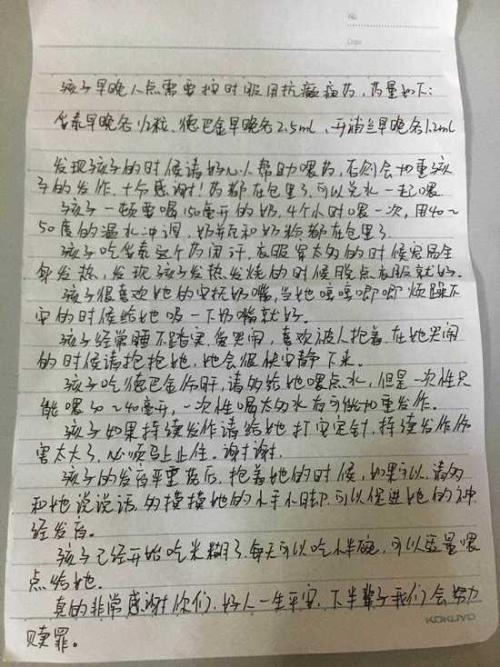 No
Date
孩子早晚八点需要按时服用抗癫痫药,药量如下:
妥泰早晚各1/2粒,德巴金早晚各2.5ml,开浦兰早晚各1.2ml
发现孩子的时候请好心人帮助喂药,否则会加重孩
子的发作,十分感谢!药都在包里了,可以兑水一起喂
孩子一顿要喝150毫升的奶,4个小时喂一次,用40~
50度的温水冲调,奶瓶和奶粉都在包里了
孩子吃妥泰这个药闭汗,衣服穿太多的时候容易全
身发热,发现孩子发热发烧的时候脱点衣服就好。
孩子很喜欢她的安抚奶嘴,当她哼哼唧唧烦躁不
安的时候给她吸一下奶嘴就好。
孩子经常睡不踏实,爱哭闹,喜欢被人抱着,在她哭闹
的时候请抱抱她,她会很快安静下来。
孩子吃德巴金伤肝,请多给她喂点水,但是一次性只
能喂30~40毫升,一次性喝太多水有可能加重发作。
孩子如果持续发作请给她打安定针,持续发作伤
害太大了,必须马上止住。谢谢谢。
孩子的发育严重落后,抱着她的时候,如果可以,请多
和她说说话,多摸摸她的小手小脚,可以促进她的神
经发育。
孩子已经开始吃米糊了,每天可以吃小半碗,可以适量喂
点给她。
真的非常感谢你们,好人一生平安,下半辈子我们会努力
赎罪。
KOKUYO